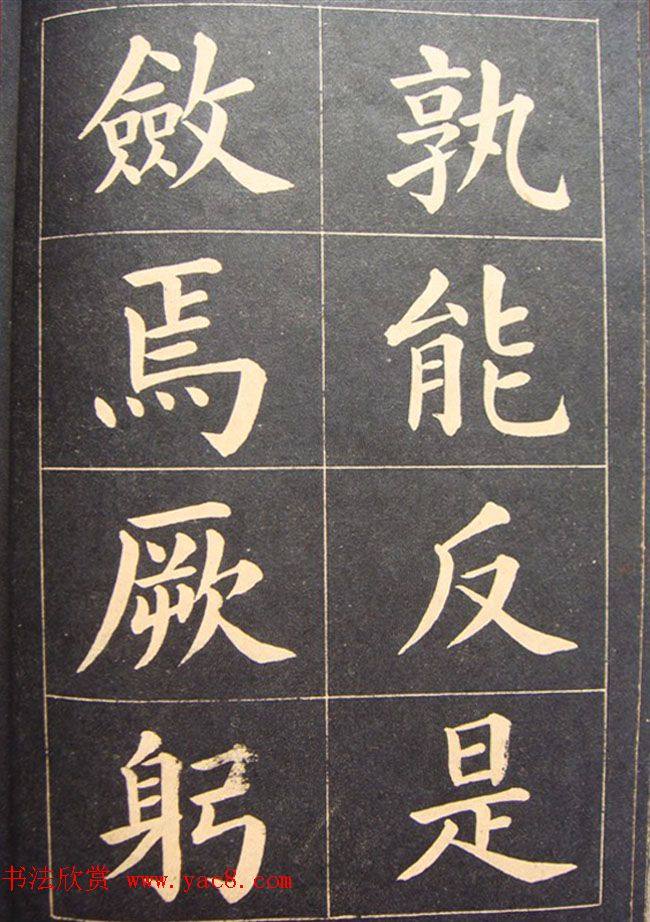 孰能反是
斂焉厥躬
书法欣赏 www.yac8.com